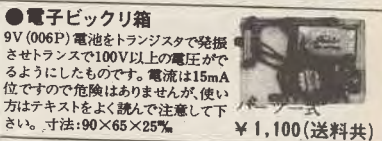 ●電子ビックリ箱
9V(006P)電池をトランジスタで発振
させトランスで100V以上の電圧がで
るようにしたものです。電流は15mA
位ですので危険はありませんが、使い
方はテキストをよく読んで注意して下
さい。寸法:90×65×25㎜
パーツ一式
¥1,100(送料共)